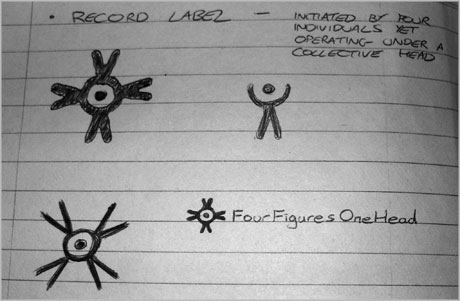 • RECORD LABEL – INITIATED BY FOUR
INDIVIDUALS YET
OPERATING UNDER A
COLLECTIVE HEAD
FourFiguresOneHead